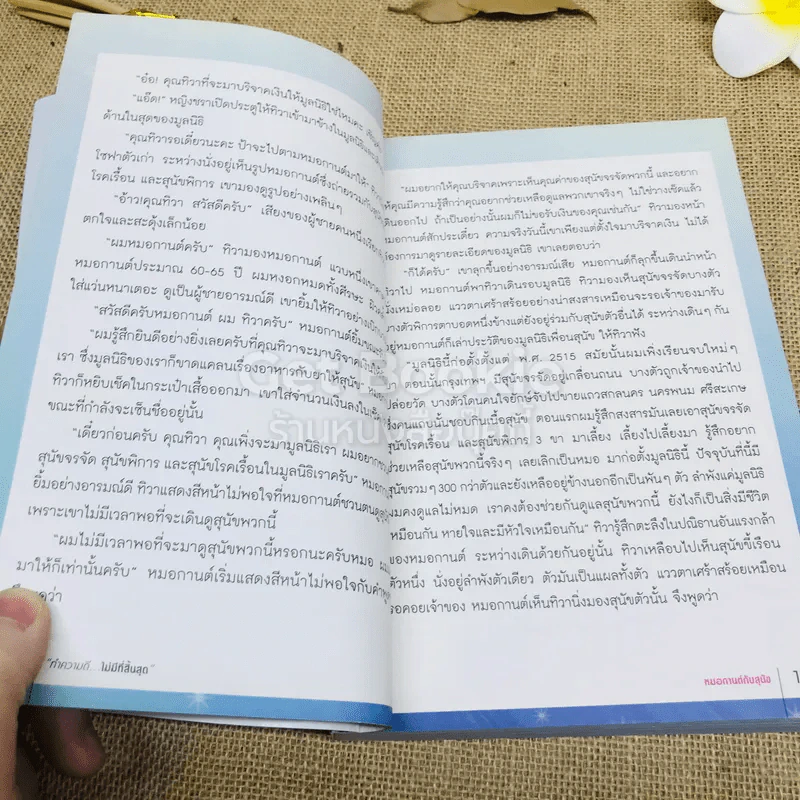 "อ๋อ! คุณทิวาที่จะมาบริจาคเงินให้มูลนิธิใช่ไหมคะ
"แอ๊ด!" หญิงชราเปิดประตูให้ทิวาเข้ามาข้างในมูลนิธิและ
ด้านในสุดของมูลนิธิ
"คุณทิวารอเดี๋ยวนะคะ ป้าจะไปตามหมอกานต์มาให้"
โซฟาตัวเก่า ระหว่างนั่งอยู่เห็นรูปหมอกานต์ซึ่งถ่ายรวมกับ
โรคเรื้อน และสุนัขพิการ เขามองดูรูปอย่างเพลินๆ
"อ้าว!คุณทิวา สวัสดีครับ" เสียงของผู้ชายคนหนึ่ง
ตกใจและสะดุ้งเล็กน้อย
"ผมหมอกานต์ครับ" ทิวามองหมอกานต์ แวบหนึ่ง
หมอกานต์ประมาณ 60-65 ปี ผมหงอกหมดทั้งศีรษะ
ใส่แว่นหนาเตอะ ดูเป็นผู้ชายอารมณ์ดี เขายิ้มให้ทิวาอย่าง
"สวัสดีครับหมอกานต์ ผม ทิวาครับ" หมอกานต์ยิ้ม
"ผมรู้สึกยินดีอย่างยิ่งเลยครับที่คุณทิวาจะมาบริจาคเงินให้
เรา ซึ่งมูลนิธิของเราก็ขาดแคลนเรื่องอาหารกับยาให้สุนัข"
ทิวาก็หยิบเช็คในกระเป๋าเสื้อออกมา เขาใส่จำนวนเงินลงใน
ขณะที่กำลังจะเซ็นชื่ออยู่นั้น
"เดี๋ยวก่อนครับ คุณทิวา คุณเพิ่งจะมามูลนิธิเรา ผมอยาก
สุนัขจรจัด สุนัขพิการ และสุนัขโรคเรื้อนในมูลนิธิเราครับ"
ยิ้มอย่างอารมณ์ดี ทิวาแสดงสีหน้าไม่พอใจที่หมอกานต์ชวนตนดู
เพราะเขาไม่มีเวลาพอที่จะเดินดูสุนัขพวกนี้
"ผมไม่มีเวลาพอที่จะมาดูสุนัขพวกนี้หรอกนะครับหมอ
มาให้ก็เท่านั้นครับ" หมอกานต์เริ่มแสดงสีหน้าไม่พอใจกับ
"ทำความดี... ไม่มีที่สิ้นสุด"
"ผมอยากให้คุณบริจาคเพราะเห็นคุณค่าของสุนัขจรจัดพวกนี้ และอยาก
ให้คุณมีความรู้สึกว่าคุณอยากช่วยเหลือดูแลพวกเขาจริงๆ ไม่ใช่วางเช็คแล้ว
เดินออกไป ถ้าเป็นอย่างนั้นผมก็ไม่ขอรับเงินของคุณเช่นกัน" ทิวามองหน้า
หมอกานต์สักประเดี๋ยว ความจริงวันนี้เขาเพียงแต่ตั้งใจมาบริจาคเงิน ไม่ได้
ต้องการมาดูรายละเอียดของมูลนิธิ เขาเลยตอบว่า
"ก็ได้ครับ" เขาลุกขึ้นอย่างอารมณ์เสีย หมอกานต์ก็ลุกขึ้นเดินนำหน้า
ทิวาไป หมอกานต์พาทิวาเดินรอบมูลนิธิ ทิวามองเห็นสุนัขจรจัดบางตัว
นั่งเหม่อลอย แววตาเศร้าสร้อยอย่างน่าสงสารเหมือนจะรอเจ้าของมารับ
บางตัวพิการตาบอดหนึ่งข้างแต่ยังอยู่ร่วมกับสุนัขตัวอื่นได้ ระหว่างเดินๆ กัน
อยู่หมอกานต์ก็เล่าประวัติของมูลนิธิเพื่อนสุนัข ให้ทิวาฟัง
มูลนิธินี้ก่อตั้งตั้งแต่ พ.ศ. 2515 สมัยนั้นผมเพิ่งเรียนจบใหม่ๆ
ตอนนั้นกรุงเทพฯ มีสุนัขจรจัดอยู่เกลื่อนถนน บางตัวถูกเจ้าของนำไป
ปล่อยวัด บางตัวโดนคนใจยักษ์จับไปขายแถวสกลนคร นครพนม ศรีสะเกษ
ซึ่งคนแถบนั้นชอบกินเนื้อสุนัข ตอนแรกผมรู้สึกสงสารมันเลยเอาสุนัขจรจัด
สุนัขโรคเรื้อน และสุนัขพิการ 3 ขา มาเลี้ยง เลี้ยงไปเลี้ยงมา รู้สึกอยาก
ช่วยเหลือสุนัขพวกนี้จริงๆ เลยเลิกเป็นหมอ มาก่อตั้งมูลนิธินี้ ปัจจุบันที่นี้มี
สุนัขรวมๆ 300 กว่าตัวและยังเหลืออยู่ข้างนอกอีกเป็นพันๆ ตัว ลำพังแค่มูลนิธิ
ผมคงดูแลไม่หมด เราคงต้องช่วยกันดูแลสุนัขพวกนี้ ยังไงก็เป็นสิ่งมีชีวิต
เหมือนกัน หายใจและมีหัวใจเหมือนกัน" ทิวารู้สึกตะลึงในปณิธานอันแรงกล้า
ของหมอกานต์ ระหว่างเดินด้วยกันอยู่นั้น ทิวาเหลือบไปเห็นสุนัขขี้เรือน
ตัวหนึ่ง นั่งอยู่ลำพังตัวเดียว ตัวมันเป็นแผลทั้งตัว แววตาเศร้าสร้อยเหมือน
รอคอยเจ้าของ หมอกานต์เห็นทิวานิ่งมองสุนัขตัวนั้น จึงพูดว่า
หมอกานต์กับสุนัข